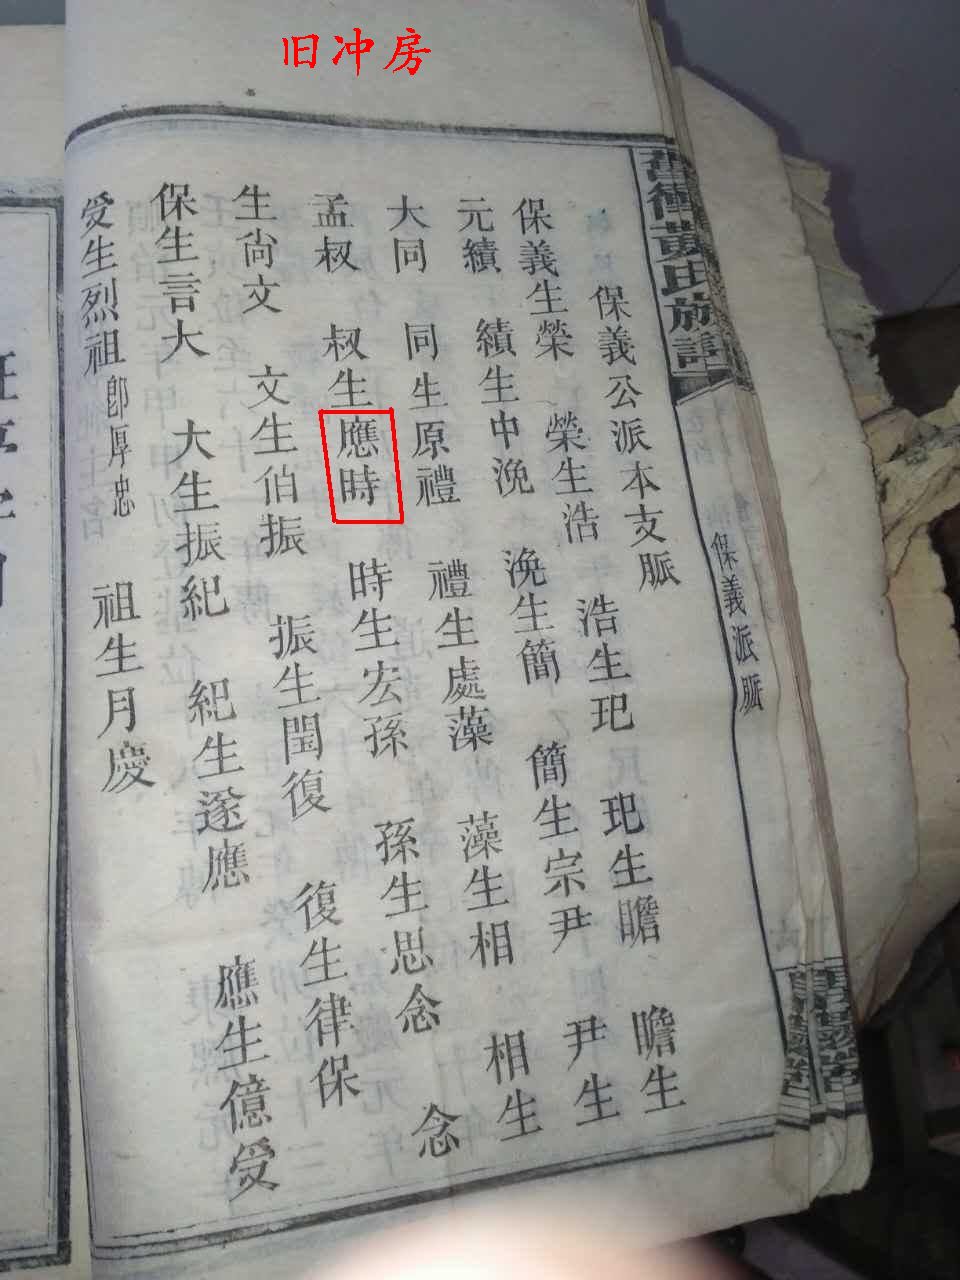 旧冲房
舊衝黃氏族譜
保義派脈
保義公派本支脈
保義生榮 榮生浩 浩生玘 玘生瞻 瞻生
元績 績生中浼 浼生簡 簡生宗尹 尹生
大同 同生原禮 禮生處藻 藻生相 相生
孟叔 叔生應時 時生宏孫 孫生思念 念
生尙文 文生伯振 振生閏復 復生律保
保生言大 大生振紀 紀生遂應 應生億受
受生烈祖卽厚忠 祖生月慶